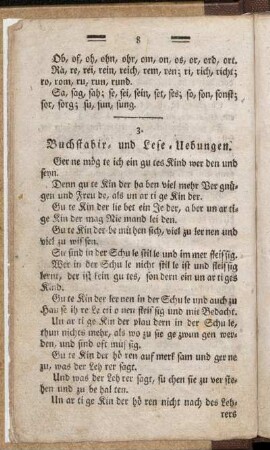 8
Ob, of, oh, ohn, ohr, om, on, os, or, ord, ort.
Ra, re, rei, rein, reich, rem, ren; ri, rich, richt;
ro, rom, ru, run, rund.
Sa, sag, sah; se, sei, sein, set, ses; so, son, sonst;
sor, sorg; su, sun, sung.
3.
Buchstabir- und Lese-Uebungen.
Ger ne mög te ich ein gu tes Kind wer den und
seyn.
Denn gu te Kin der ha ben viel mehr Ver gnü-
gen und Freu de, als un ar ti ge Kin der.
Gu te Kin der lie bet ein Je der, a ber un ar ti-
ge Kin der mag Nie mand lei den.
Gu te Kin der be mü hen sich, viel zu ler nen und
viel zu wis sen.
Sie sind in der Schu le stil le und im mer fleis sig.
Wer in der Schu le nicht stil le ist und fleis sig
lernt, der ist kein gu tes, son dern ein un ar ti ges
Kind.
Gu te Kin der ler nen in der Schu le und auch zu
Hau se ih re Le cti o nen fleis sig und mit Bedacht.
Un ar ti ge Kin der plau dern in der Schu le,
thun nichts mehr, als wo zu sie ge zwun gen wer-
den, und sind oft müs sig.
Gu te Kin der hö ren auf merk sam und ger ne
zu, was der Leh rer sagt.
Und was der Leh rer sagt, su chen sie zu ver ste-
hen und zu be hal ten.
Un ar ti ge Kin der hö ren nicht nach des Leh-
rers